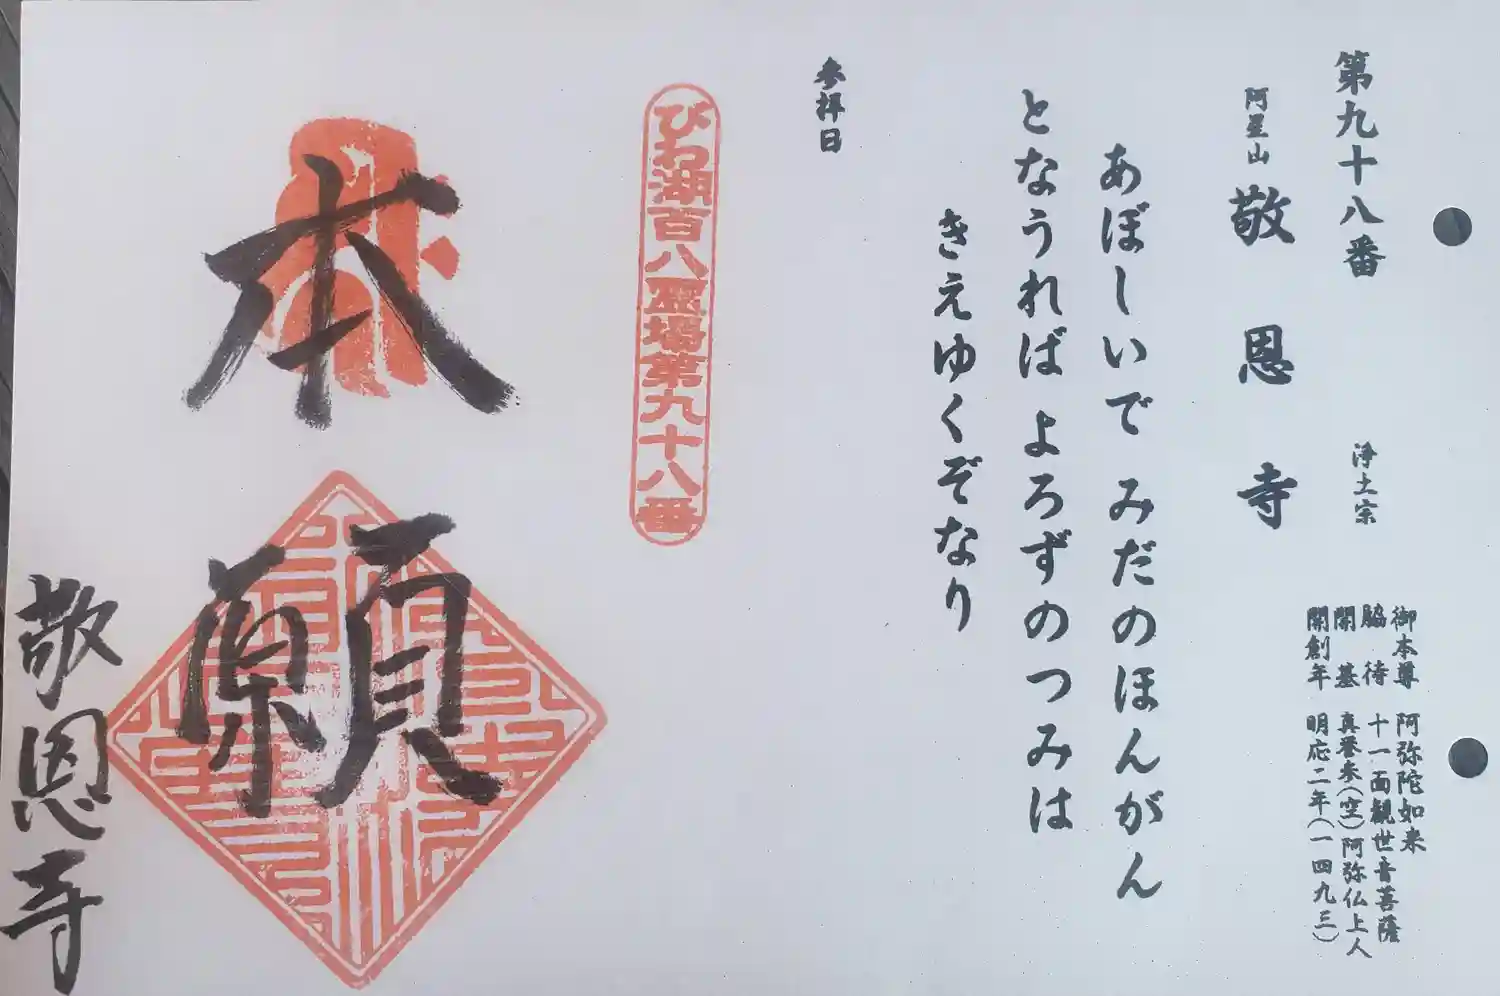 第九十八番 浄土宗
御本尊 阿弥陀如来
脇待 十一面観世音菩薩
開基 真誉参(空)阿弥仏上人
開創年 明応二年(一四九三)
阿星山 敬恩寺
あぼしいで みだのほんがん
となうれば よろずのつみは
きえゆくぞなり
参拝日
びわ湖百八霊場第九十八番
本願
敬恩寺